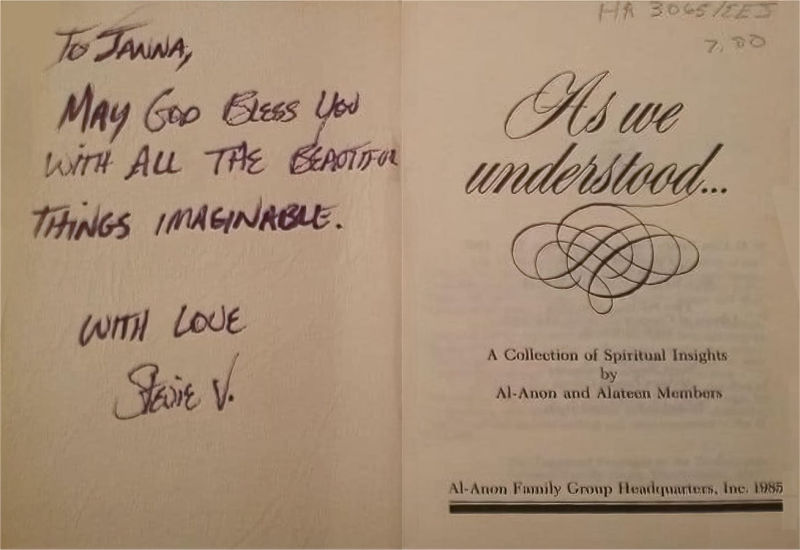 To Janna,
May God Bless You
with all the beautiful
things imaginable.
with Love
Stevie V.
HR 3065/EEJ
7.00
As we
understood...
A Collection of Spiritual Insights
by
Al-Anon and Alateen Members
Al-Anon Family Group Headquarters, Inc. 1985